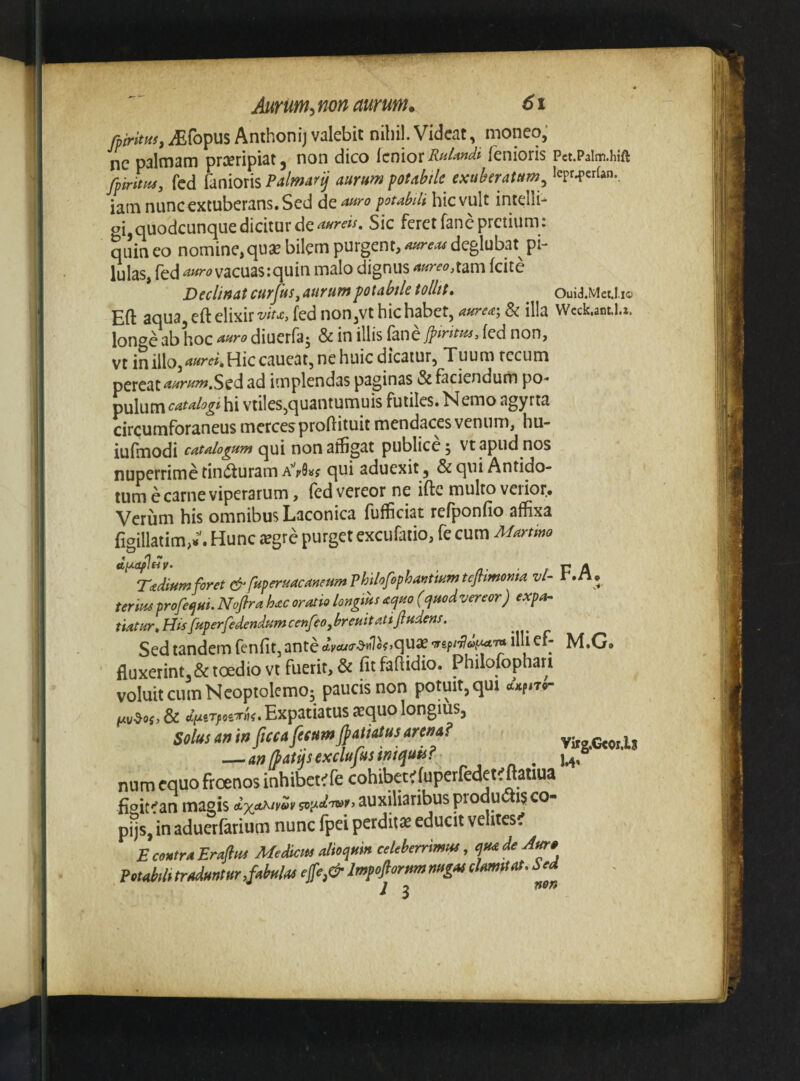 Aurum, non aurum. 61
ſpiritus, Æſopus Anthonij valebit nihil. Videat, moneo,
ne palmam præripiat, non dico ſenior Rulandi ſenioris Pet.Palm.hiſt
ſpiritus, ſed ſanioris Palmarij aurum potabile exuberatum, lepr.perſan.
iam nunc extuberans. Sed de auro potabili hic vult intelli-
gi, quodcunque dicitur de aureis. Sic feret ſane pretium:
quin eo nomine, quæ bilem purgent, aureas deglubat pi-
lulas, ſed auro vacuas: quin malo dignus aureo, tam ſcite
Declinat curſus, aurum potabile tollit. Ouid.Met.l.10
Eſt aqua, eſt elixir vitæ, ſed non, vt hic habet, aurea; & illa Weck.ant.l.2.
longe ab hoc auro diuerſa; & in illis ſane ſpiritus, ſed non,
vt in illo, aurei. Hic caueat, ne huic dicatur, Tuum tecum
pereat aurum. Sed ad implendas paginas & faciendum po-
pulum catalogi hi vtiles, quantumuis futiles. Nemo agyrta
circumforaneus merces proſtituit mendaces venum, hu-
iuſmodi catalogum qui non affigat publicè; vt apud nos
nuperrimè tincturam qui aduexit, & qui Antido-
tum è carne viperarum, ſed vereor ne iſte multo verior.
Verùm his omnibus Laconica ſufficiat reſponſio affixa
ſigillatim, Hunc ægrè purget excuſatio, ſe cum Martino
Tædium foret & ſuperuacaneum Philoſophantium teſtimonia vl- F.A.
terius proſequi. Noſtra hæc oratio longiùs æquo (quod vereor) expa-
tiatur. His ſuperſedendum cenſeo, breuitati ſtudens.
Sed tandem ſenſit, ante quæ illi ef- M.G.
fluxerint, & tœdio vt fuerit, & ſit faſtidio. Philoſophari
voluit cum Neoptolemo; paucis non potuit, qui ἀκριτό-
μυθος, & ἀμετροεπής. Expatiatus æquo longiùs,
Solus an in ſicca ſecum ſpatiatus arena?
— an ſpatijs excluſus iniquis? Virg.Geor.l3
l.4.
num equo frœnos inhibet? ſe cohibet? ſuperſedet? ſtatiua
figit? an magis auxiliaribus productis co-
pijs, in aduerſarium nunc ſpei perditæ educit velites?
E contra Eraſtus Medicus alioquin celeberrimus, quæ de Auro
Potabili traduntur, fabulas eſſe, & Impoſtorum nugas clamitat. Sed
I 3 non